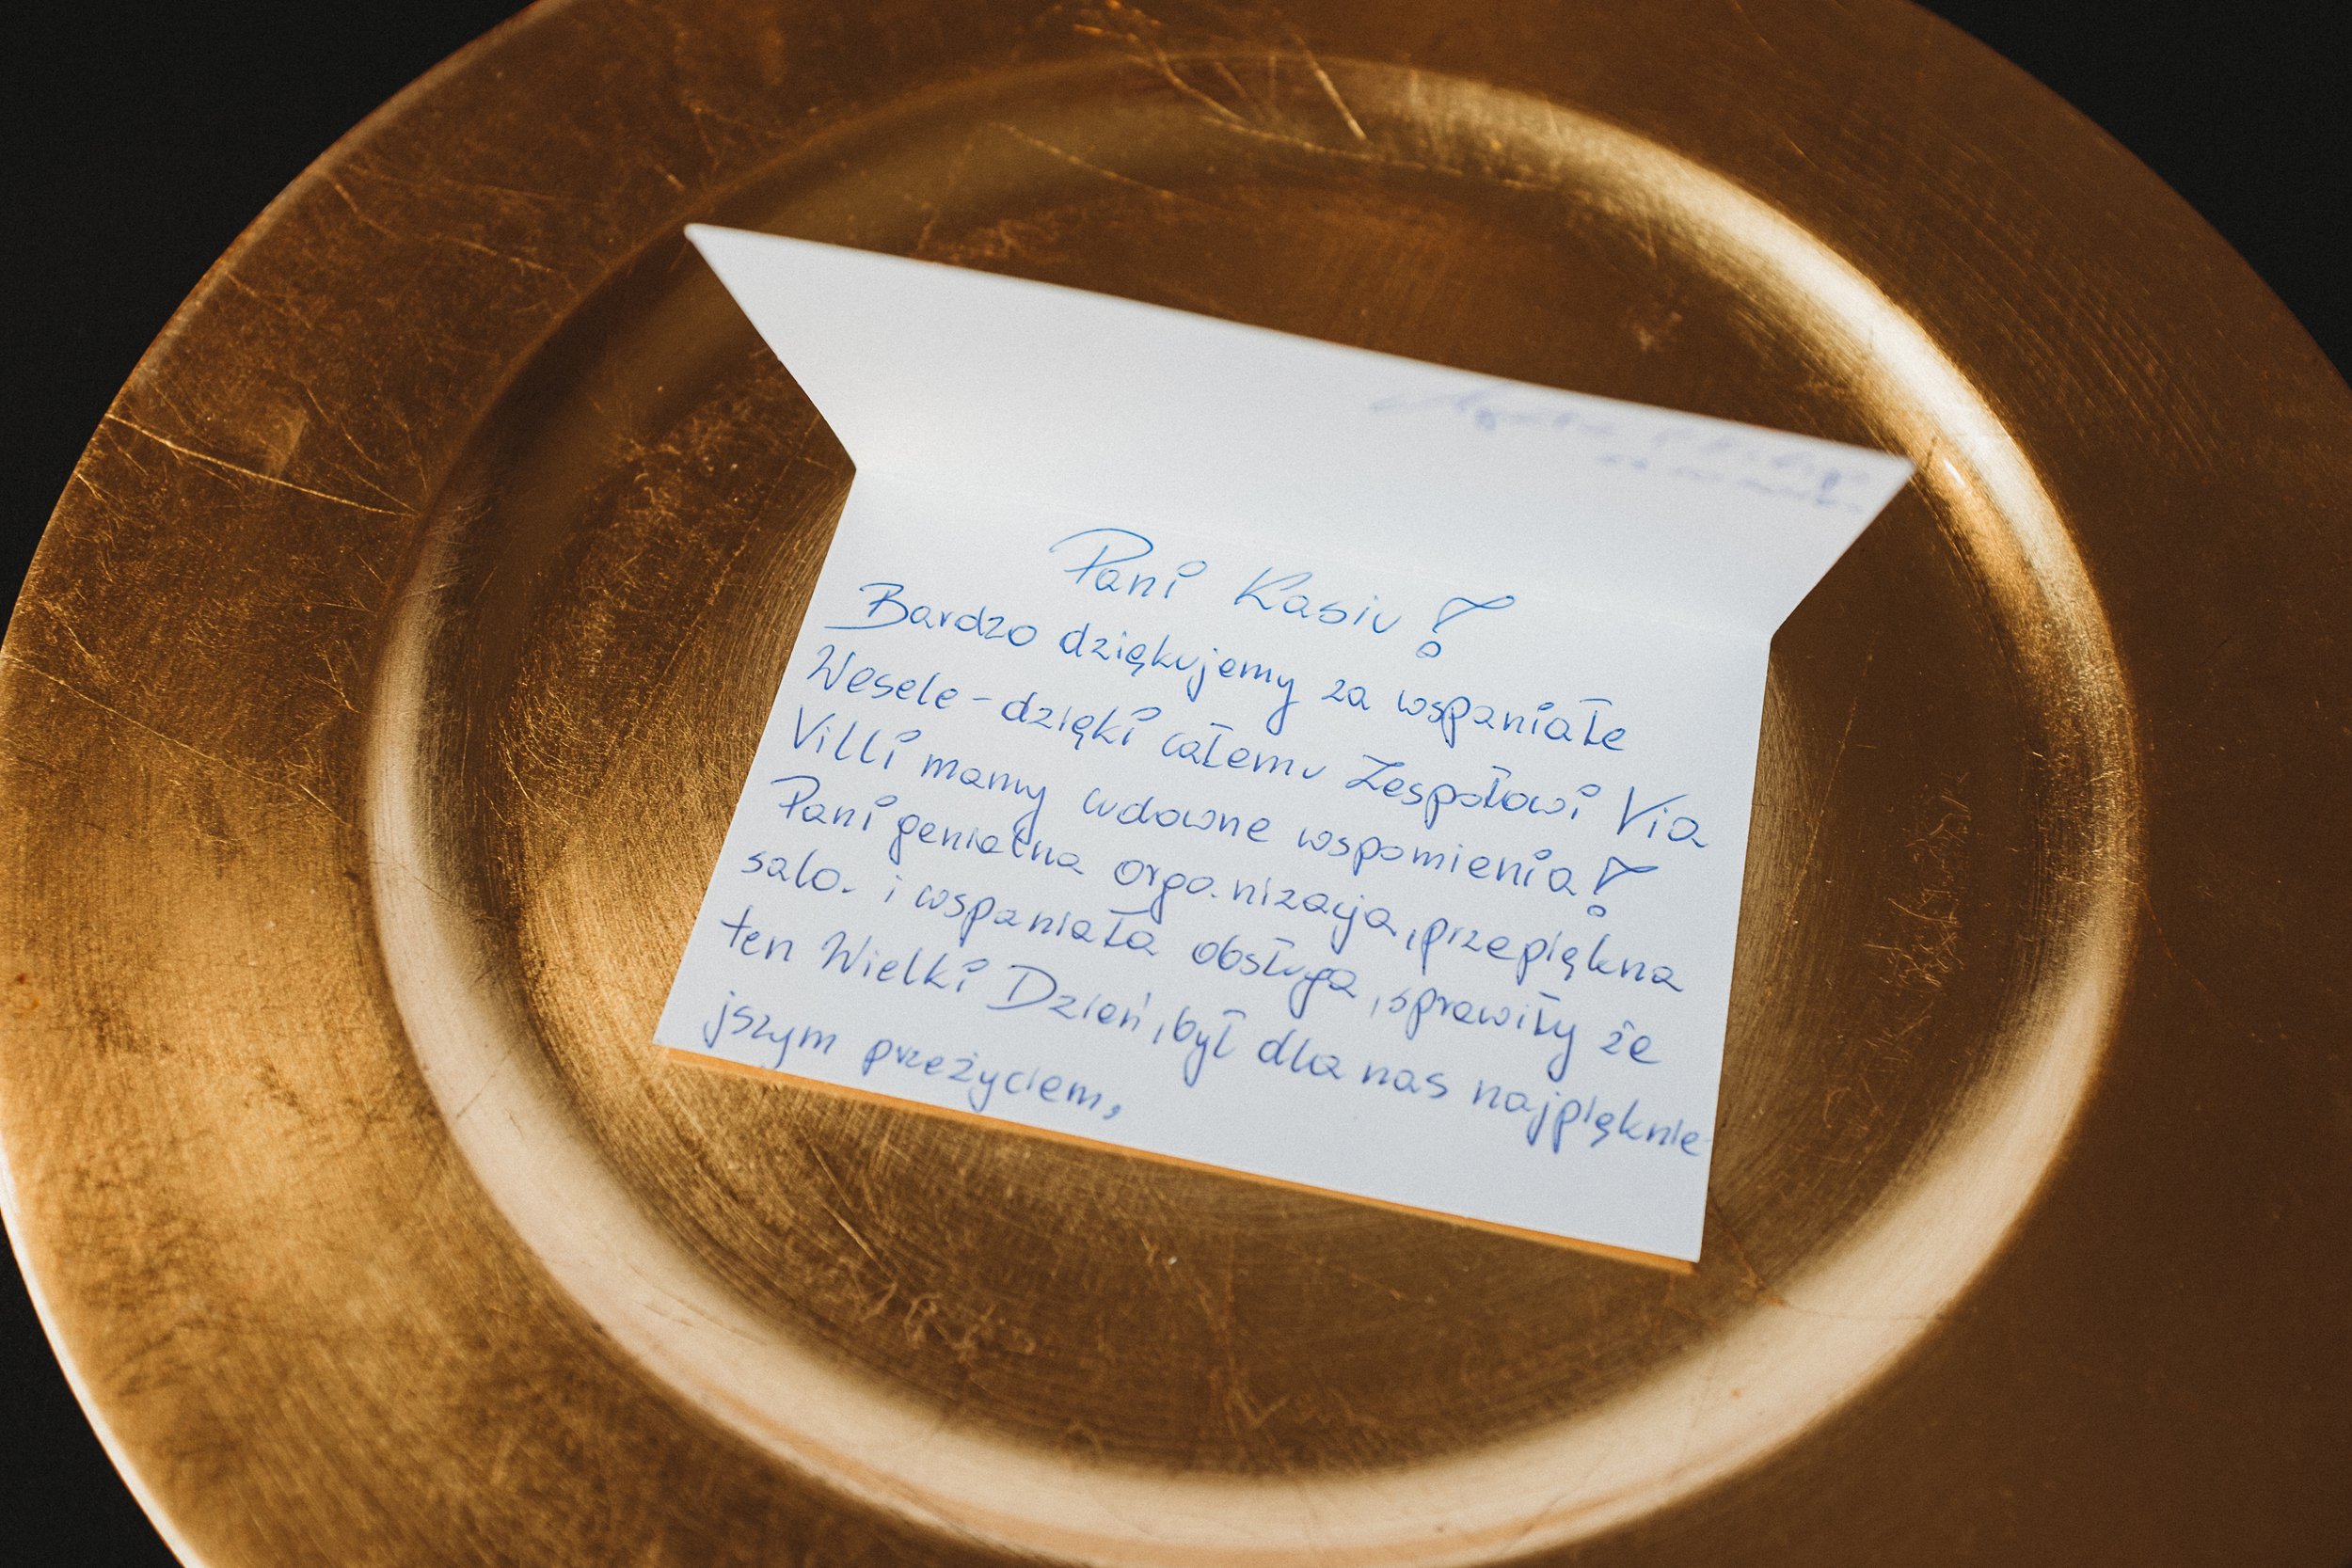 Pani Kasiu!
Bardzo dziękujemy za wspaniałe
Wesele - dzięki całemu Zespołowi Via
Villi mamy cudowne wspomnienia!
Pani genialna organizacja, przepiękna
sala i wspaniała obsługa, sprawiły że
ten Wielki Dzień, był dla nas najpięknie-
jszym przeżyciem,